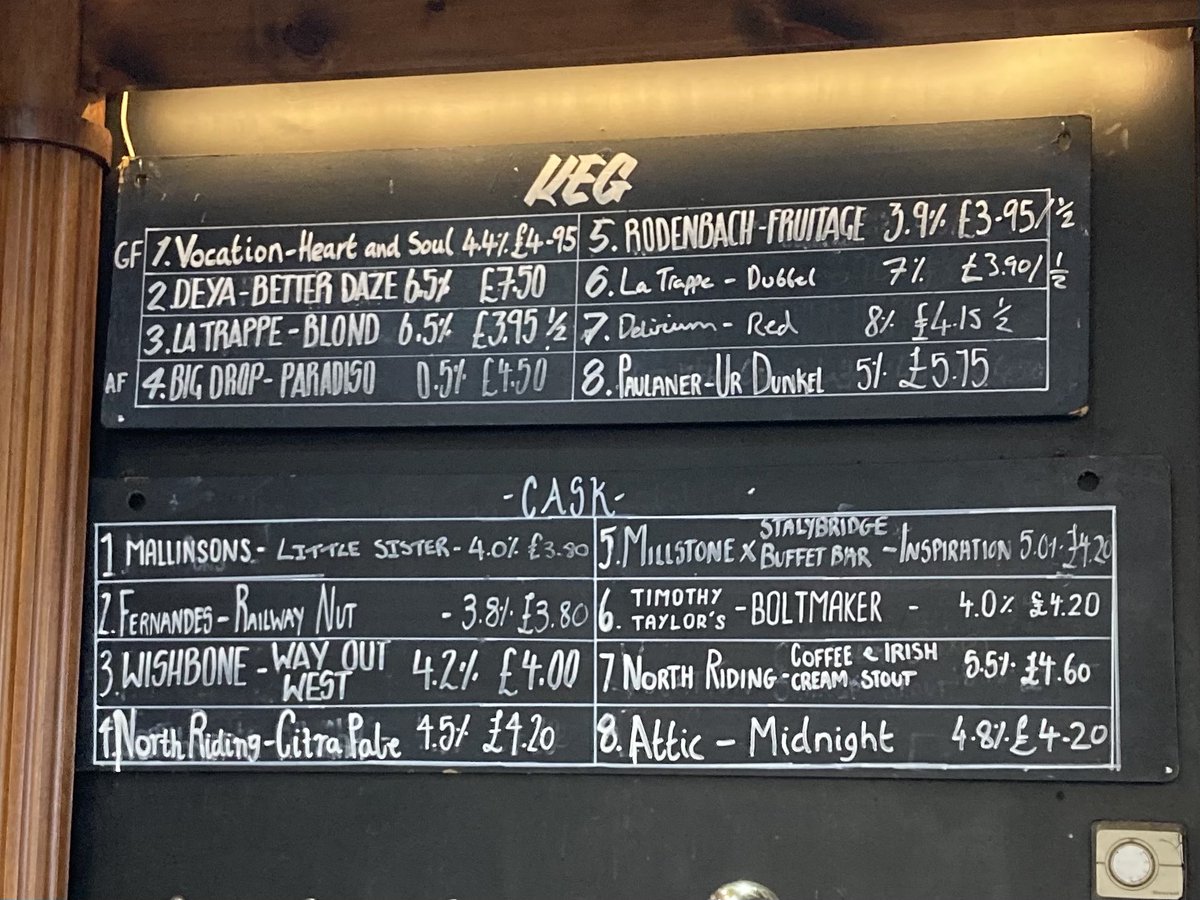 KEG
GF 1. Vocation-Heart and Soul 4.4% £4-95
2. DEYA-BETTER DAZE 6.5% £7.50
3. LA TRAPPE-BLOND 6.5% £3.95 ½
AF 4. BIG DROP-PARADISO 0.5% £4.50
5. RODENBACH-FRUITAGE 3.9% £3-95/½
6. La Trappe - Dubbel 7% £3.90/½
7. Delirium - Red 8% £4.15 ½
8. PAULANER-UR DUNKEL 5% £5.75
-CASK-
1 MALLINSONS- LITTLE SISTER- 4.0% £3.80
2. FERNANDES- RAILWAY NUT - 3.8% £3.80
3. WISHBONE - WAY OUT
WEST 4.2% £4.00
4. North Riding-Citra Pale 4.5% £4.20
5. MILLSTONE X STALYBRIDGE
BUFFET BAR - INSPIRATION 5.0% £4.20
6. TIMOTHY
TAYLOR'S - BOLTMAKER - 4.0% £4.20
7 NORTH RIDING- COFFEE & IRISH
CREAM STOUT 5.5% £4.60
8. Attic - Midnight 4.8% £4-20